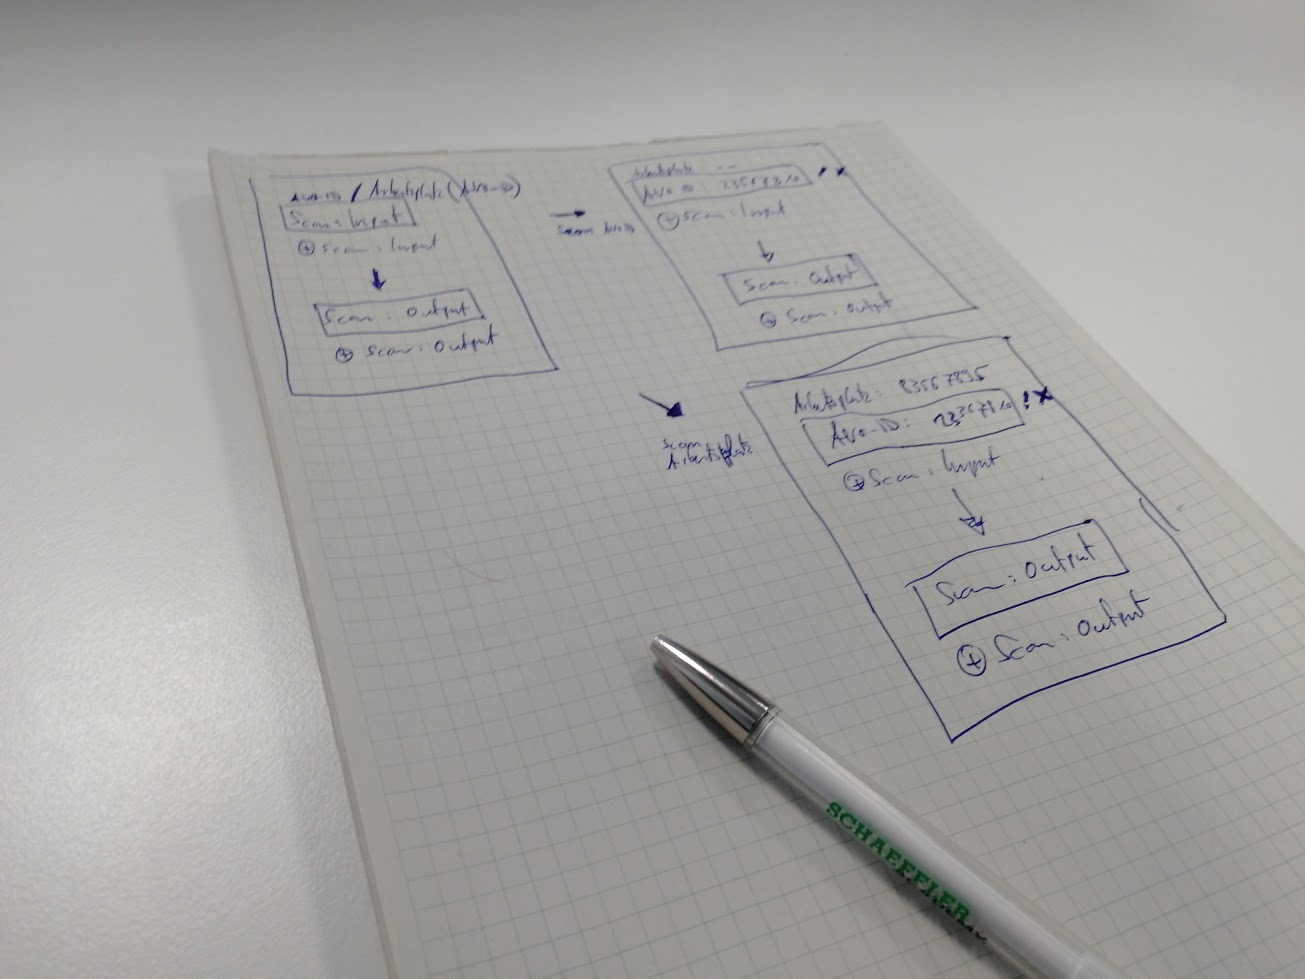 Avo-ID / Arbeitsplatz (Avo-ID)
Scan: Input
⊕ Scan: Input
Scan: Output
⊕ Scan: Output
Scan Avo ID
Arbeitsplatz
Avo ID:
⊕ Scan: Input
Scan: Output
⊕ Scan: Output
Scan
Arbeitsplatz
Arbeitsplatz: 83567895
Avo-ID:
⊕ Scan: Input
Scan: Output
⊕ Scan: Output
SCHAEFFLER